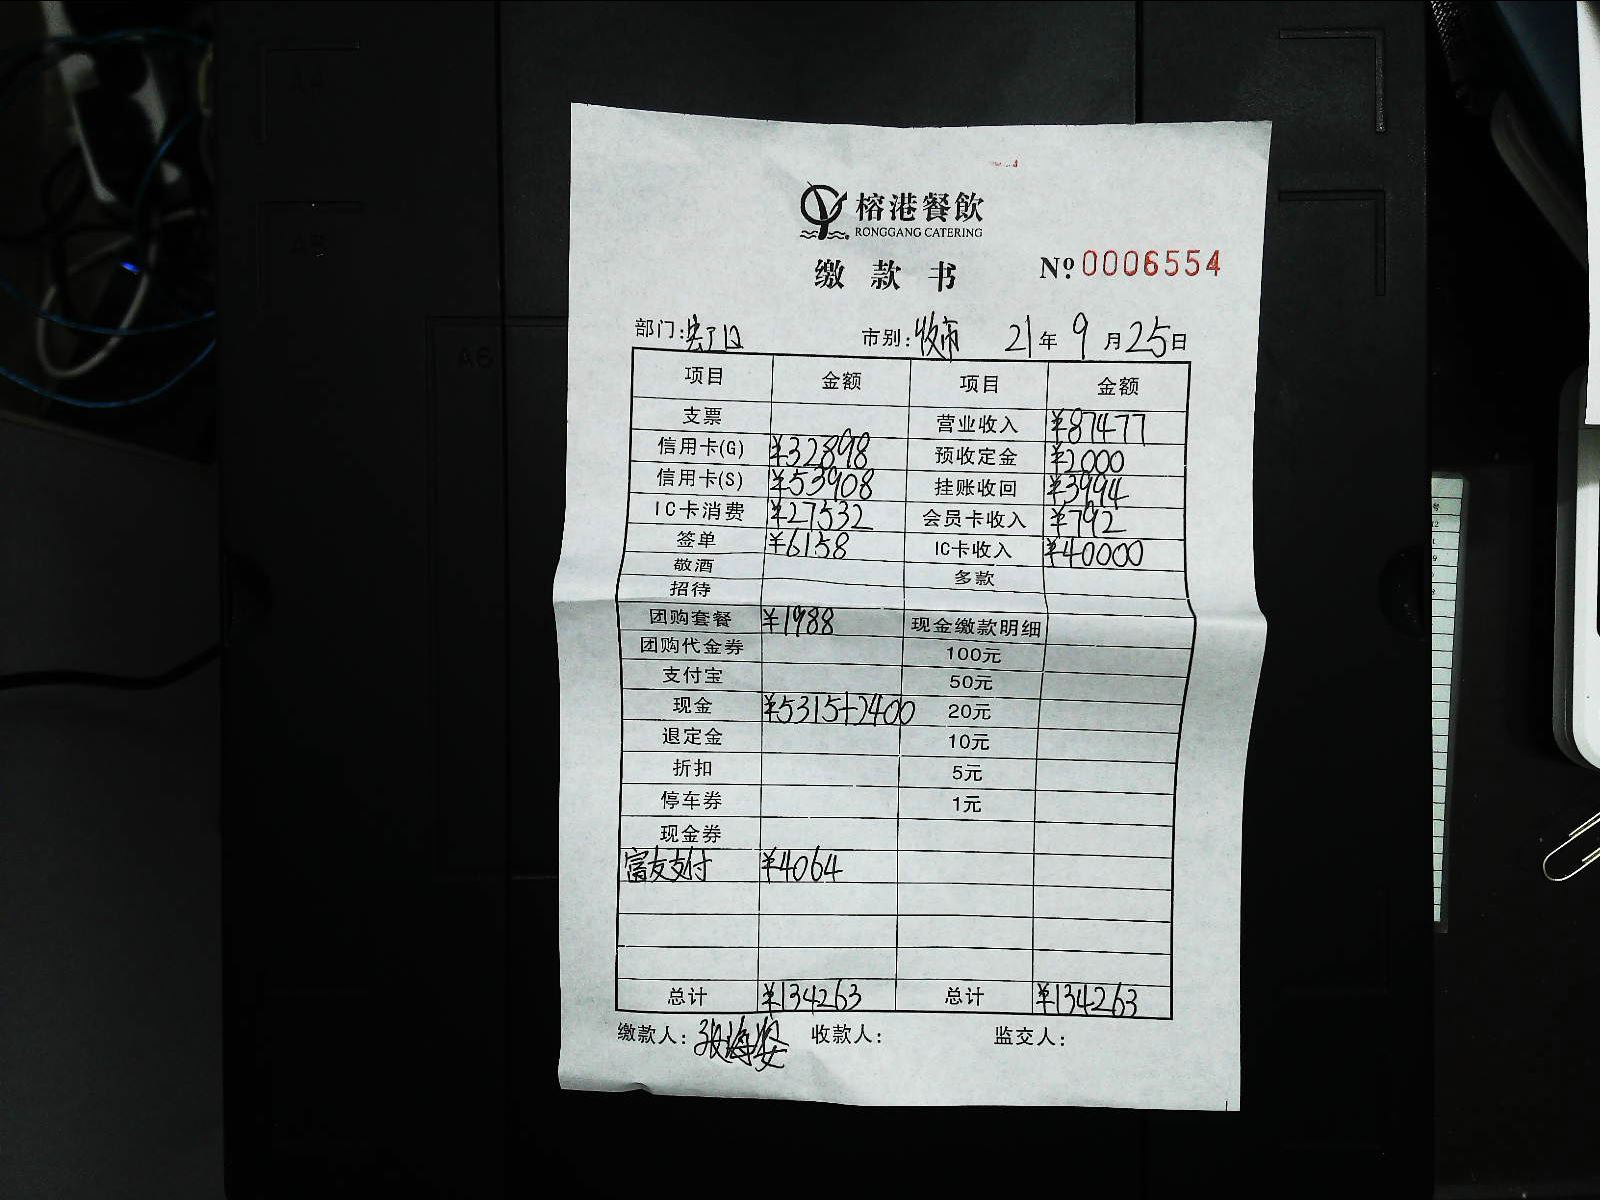 榕港餐飲
RONGGANG CATERING
缴款书 Nº 0006554
部门: 市别: 收市 21年9月25日
项目 金额 项目 金额
支票 营业收入 ¥87477
信用卡(G) ¥32898 预收定金 ¥2000
信用卡(S) ¥53908 挂账收回 ¥3994
IC卡消费 ¥27532 会员卡收入 ¥792
签单 ¥6158 IC卡收入 ¥40000
敬酒 多款
招待
团购套餐 ¥1988 现金缴款明细
团购代金券 100元
支付宝 50元
现金 ¥5315+2400 20元
退定金 10元
折扣 5元
停车券 1元
现金券
富友支付 ¥4064
总计 ¥134263 总计 ¥134263
缴款人: 收款人: 监交人: